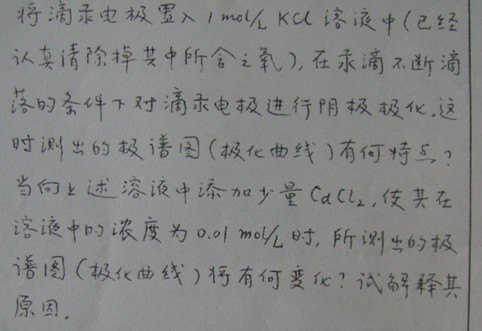 将滴汞电极置入1mol/L KCl溶液中(已经
认真清除掉其中所含之氧),在汞滴不断滴
落的条件下对滴汞电极进行阴极极化。这
时测出的极谱图(极化曲线)有何特点?
当向上述溶液中添加少量CdCl2,使其在
溶液中的浓度为0.01mol/L时,所测出的极
谱图(极化曲线)将有何变化?试解释其
原因。